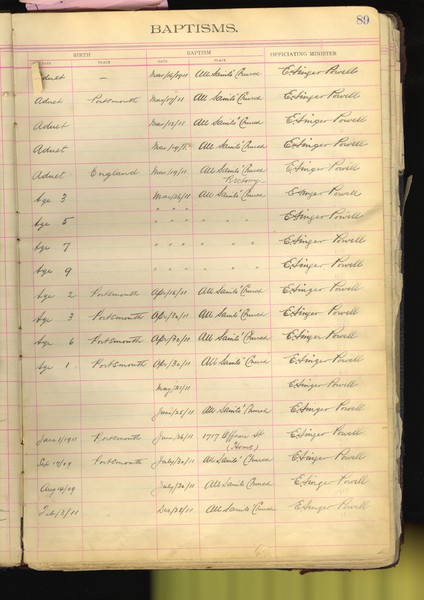 89
BAPTISMS.
BIRTH BAPTISM OFFICIATING MINISTER
DATE PLACE DATE PLACE
Adult — Mar/16/1911 All Saints' Church E. Stinger Powell
Adult Portsmouth Mar/17/11 All Saints' Church E. Stinger Powell
Adult Mar/12/11 All Saints' Church E. Stinger Powell
Adult Mar/19/11 All Saints' Church E. Stinger Powell
Adult England Mar/19/11 All Saints' Church E. Stinger Powell
Rectory
Age 3 Mar/26/11 All Saints' Church E. Stinger Powell
Age 5 " " " " " " E. Stinger Powell
Age 7 " " " " " " E. Stinger Powell
Age 9 " " " " " " E. Stinger Powell
Age 2 Portsmouth Apr/16/11 All Saints' Church E. Stinger Powell
Age 3 Portsmouth Apr/30/11 All Saints' Church E. Stinger Powell
Age 6 Portsmouth Apr/30/11 All Saints' Church E. Stinger Powell
Age 1 Portsmouth Apr/30/11 All Saints' Church E. Stinger Powell
May/21/11 E. Stinger Powell
June/25/11 All Saints' Church E. Stinger Powell
June/1911 Portsmouth June/26/11 1717 St E. Stinger Powell
(Home)
Sep 17/09 Portsmouth July/30/11 All Saints' Church E. Stinger Powell
Aug/14/09 July/30/11 All Saints' Church E. Stinger Powell
Feb/3/11 Dec/28/11 All Saints' Church E. Stinger Powell